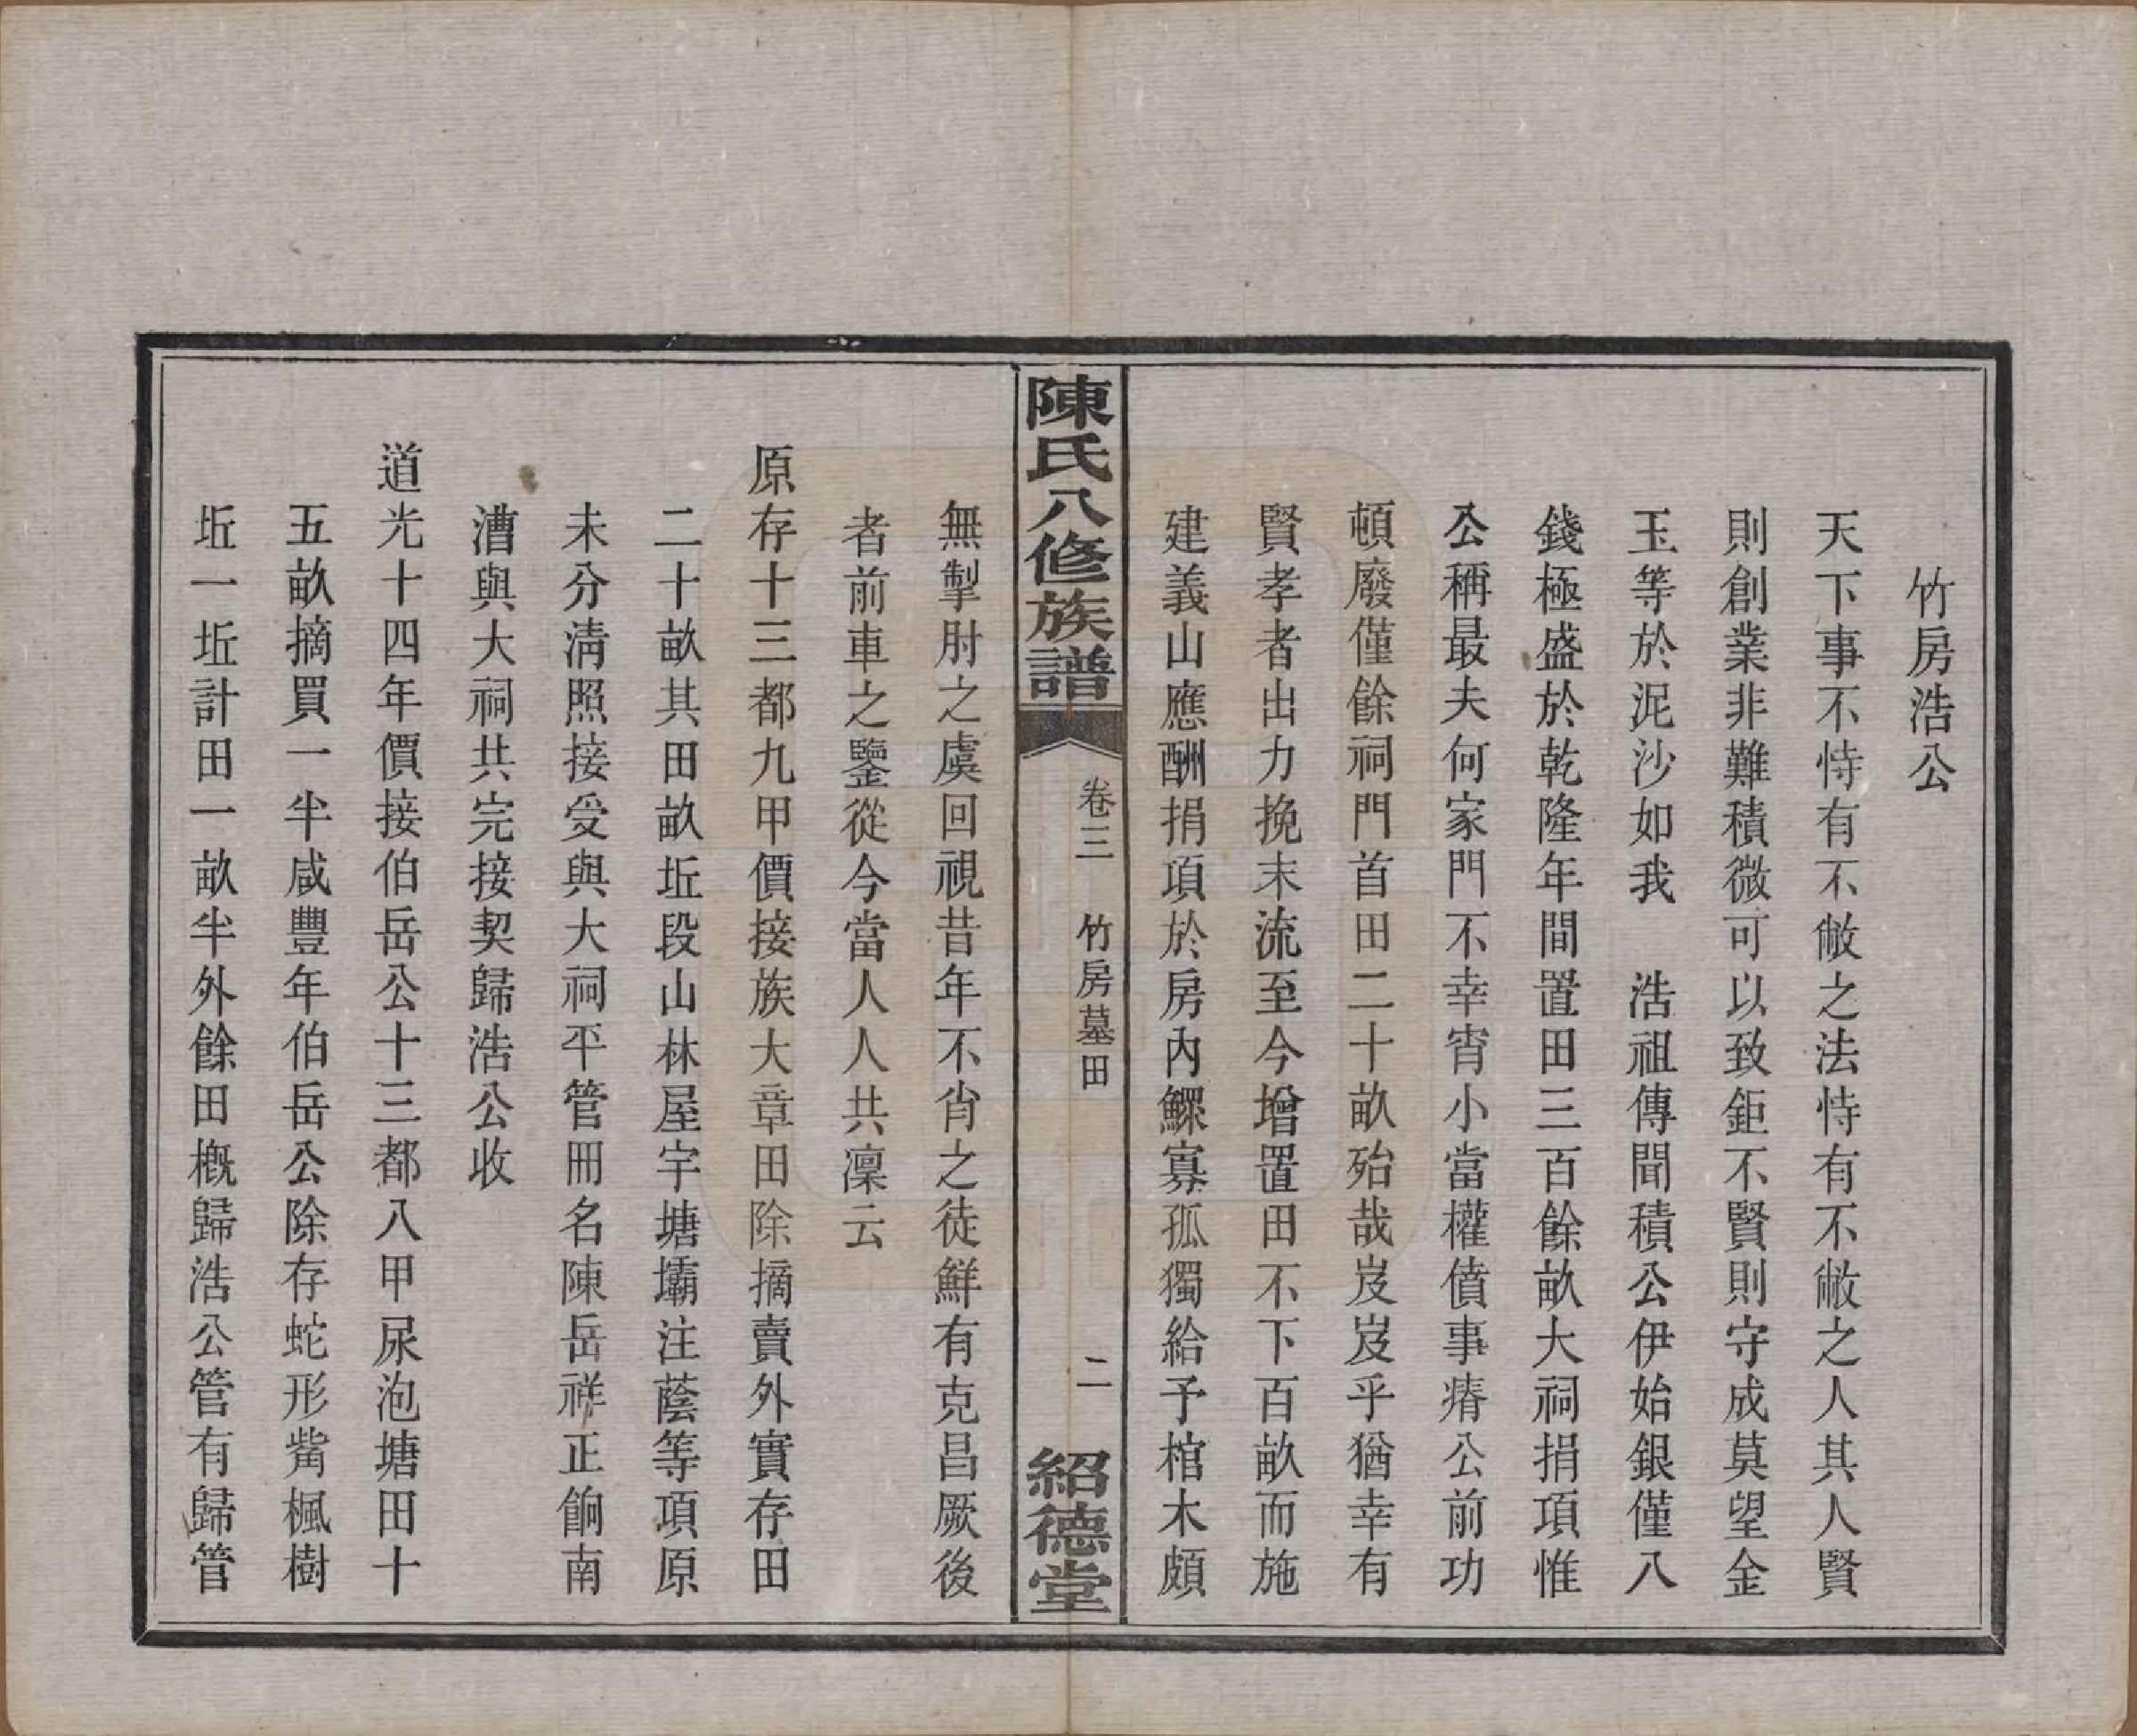 竹房浩公
天下事不恃有不敝之法恃有不敝之人其人賢
則創業非難積微可以致鉅不賢則守成莫望金
玉等於泥沙如我　浩祖傳聞積公伊始銀僅八
錢極盛於乾隆年間置田三百餘畝大祠捐項惟
公稱最夫何家門不幸宵小當權僨事瘠公前功
頓廢僅餘祠門首田二十畝殆哉岌岌乎猶幸有
賢孝者出力挽末流至今增置田不下百畝而施
建義山應酬捐項於房內鰥寡孤獨給予棺木頗
陳氏八修族譜
卷三　竹房墓田
二
紹德堂
無掣肘之虞回視昔年不肖之徒鮮有克昌厥後
者前車之鑒從今當人人共凜云
原存十三都九甲價接族大章田除摘賣外實存田
二十畝其田畝坵段山林屋宇塘壩注蔭等項原
未分淸照接受與大祠平管冊名陳岳祥正餉南
漕與大祠共完接契歸浩公收
道光十四年價接伯岳公十三都八甲尿泡塘田十
五畝摘買一半咸豐年伯岳公除存蛇形觜楓樹
坵一坵計田一畝半外餘田概歸浩公管有歸管